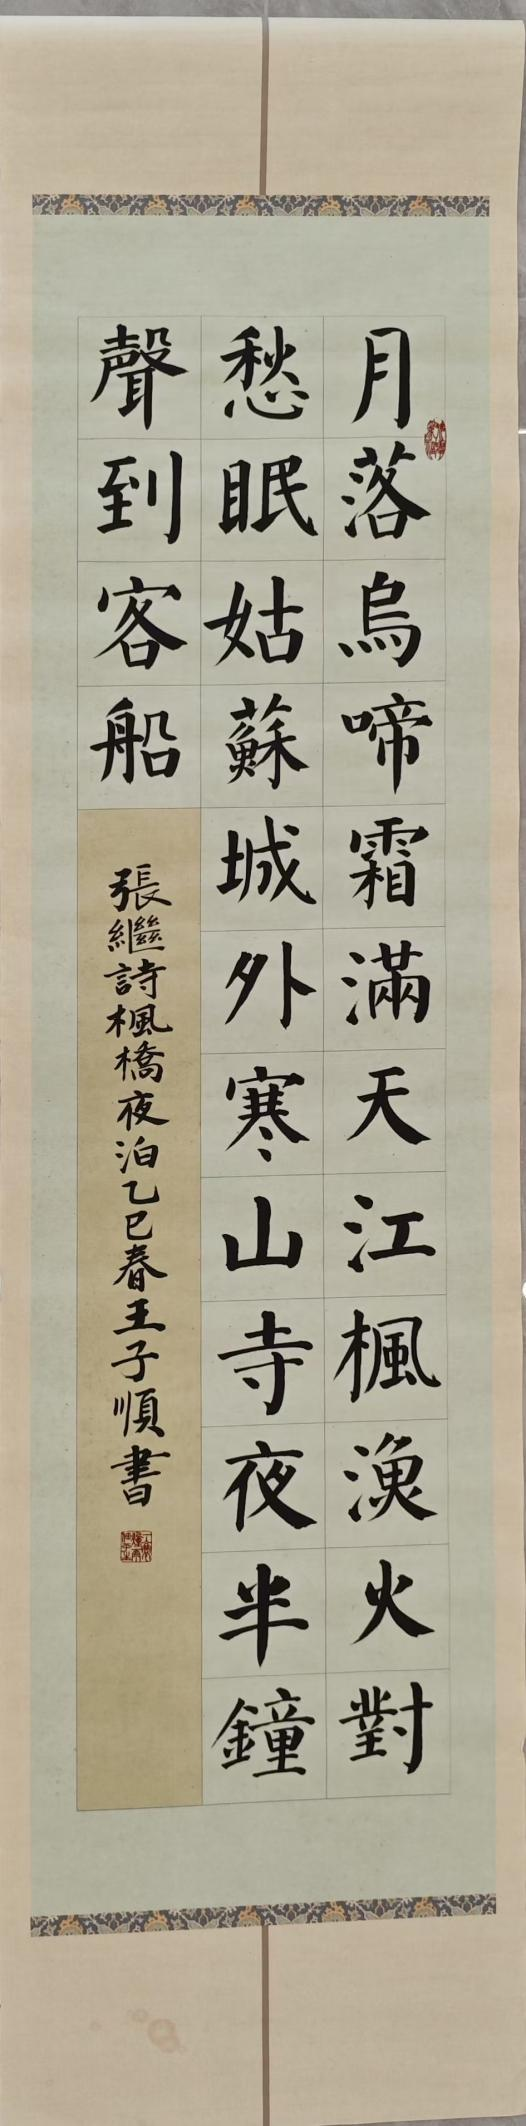 月落烏啼霜滿天江楓漁火對
愁眠姑蘇城外寒山寺夜半鐘
聲到客船
張繼詩楓橋夜泊乙巳春王子順書